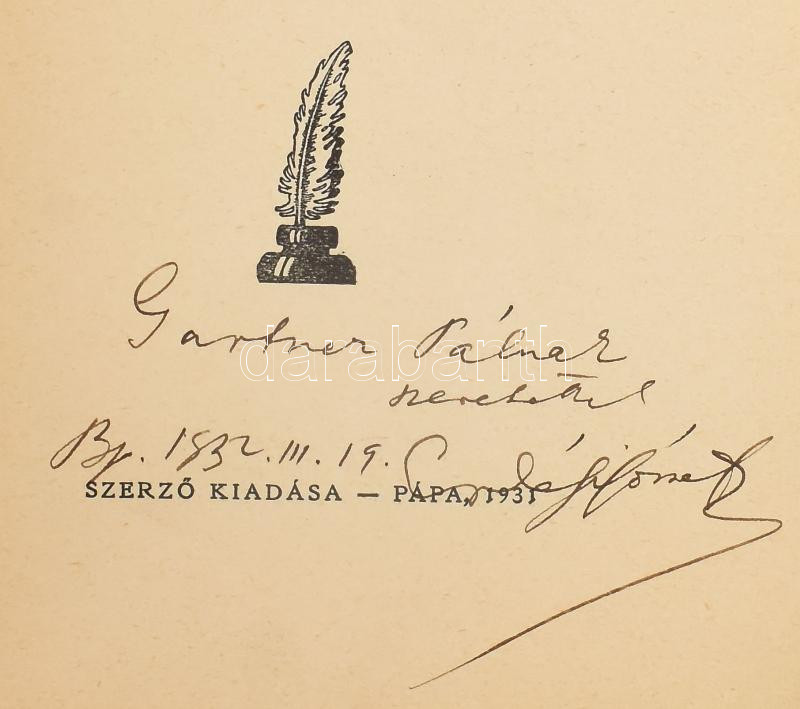 Gartner Pálnak
szeretettel
Bp. 1932. III. 19.
SZERZŐ KIADÁSA — PÁPA, 1931
darabanth